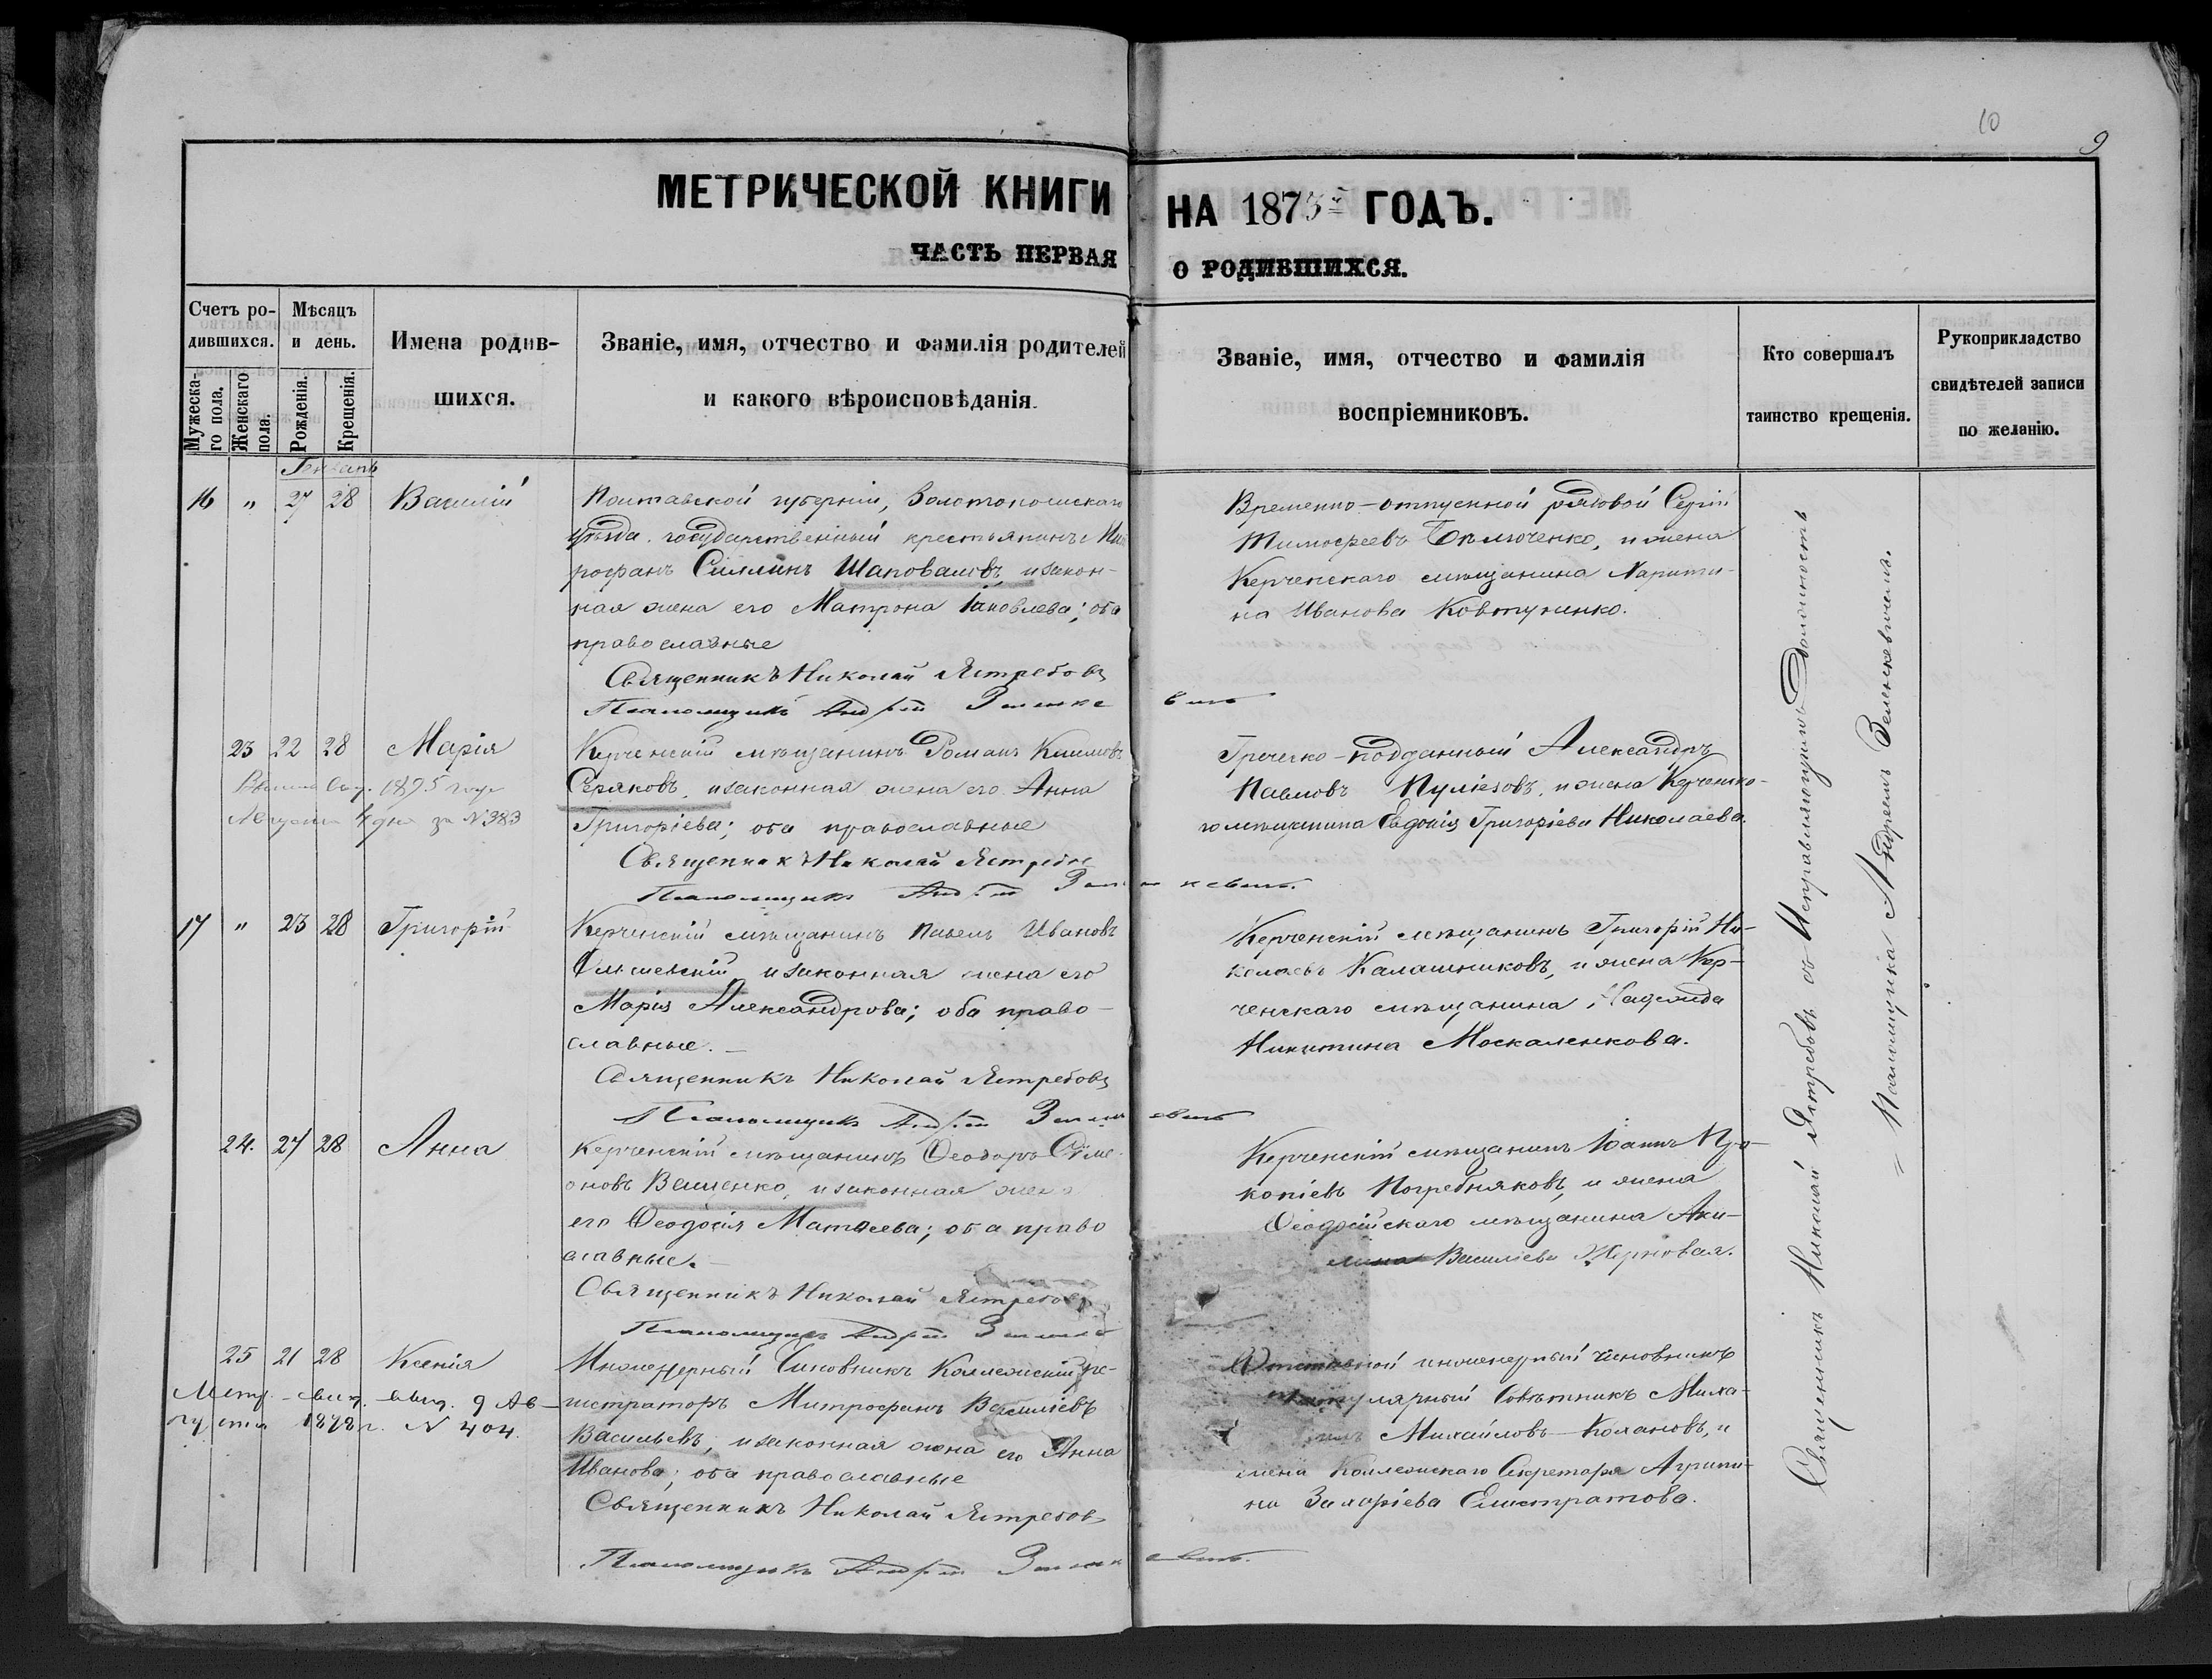 10
9
МЕТРИЧЕСКОЙ КНИГИ НА 1875й ГОДЪ.
ЧАСТЬ ПЕРВАЯ О РОДИВШИХСЯ.
Счетъ ро-
дившихся.
Мужеска-
го пола.
Женскаго
пола.
Мѣсяцъ
и день.
Рожденія.
Крещенія.
Имена родив-
шихся.
Званіе, имя, отчество и фамилія родителей
и какого вѣроисповѣданія.
Званіе, имя, отчество и фамилія
воспріемниковъ.
Кто совершалъ
таинство крещенія.
Рукоприкладство
свидѣтелей записи
по желанію.
Генварь
16 " 27 28 Василій
Полтавской губерніи, Золотоношскаго
уѣзда государственный крестьянинъ Мит
рофанъ Силинъ Шаповаловъ, и закон-
ная жена его Матрона Іаковлева; оба
православные
Священникъ Николай Ястребовъ
Псаломщикъ Андрей Зеленкевичъ
Временно-отпускной рядовой Сергій
Тимофеевъ, и жена
Керченскаго мѣщанина Харити-
на Иванова Ковтуненко.
23 22 28 Марія
1895 года
Августа 4 дня за № 383
Керченскій мѣщанинъ Романъ Климовъ
Серяковъ, и законная жена его Анна
Григоріева; оба православные
Священникъ Николай Ястребов
Псаломщикъ Андрей Зеленкевичъ.
Греческо-подданный Александръ
Павловъ Пуліезовъ, и жена Керченска-
го мѣщанина Евдокія Григоріева Николаева.
17 " 23 28 Григорій
Керченскій мѣщанинъ Павелъ Ивановъ
и законная жена его
Марія Александрова; оба право-
славные.
Священникъ Николай Ястребовъ
Псаломщикъ Андрей Зеленкевичъ
Керченскій мѣщанинъ Григорій Ни-
колаевъ Калашниковъ, и жена Кер-
ченскаго мѣщанина Надежда
Никитина Москаленкова.
24. 27 28 Анна
Керченскій мѣщанинъ Ѳеодоръ Симе-
оновъ Ващенко, и законная жена
его Ѳеодосія Матѳеева; оба право
славные.
Священникъ Николай Ястребовъ
Псаломщикъ Андрей Зеленкевичъ
Керченскій мѣщанинъ Іоаннъ Про-
копіевъ Погребняковъ, и жена
Ѳеодосійскаго мѣщанина Аки-
лина Василіева Жерновая.
25 21 28 Ксенія
Метр. свид. выд. 9 Ав-
густа 1878 г. № 404.
Инженерный Чиновникъ Коллежскій ре-
гистраторъ Митрофанъ Василіевъ
Васильевъ, и законная жена его Анна
Иванова; оба православные
Священникъ Николай Ястребовъ
Псаломщикъ Андрей Зеленкевичъ.
Отставной инженерный чиновникъ
титулярный Совѣтникъ Миха-
илъ Михайловъ Колановъ, и
жена Коллежскаго Секретаря Агрипи-
на Захаріева Елистратова.
Священникъ Николай Ястребовъ съ Исправляющимъ Должность
Псаломщика Андреемъ Зеленкевичемъ.